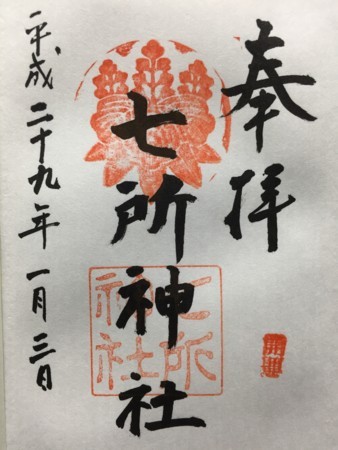 奉拝
七所神社
七所
神社
平成二十九年一月三日